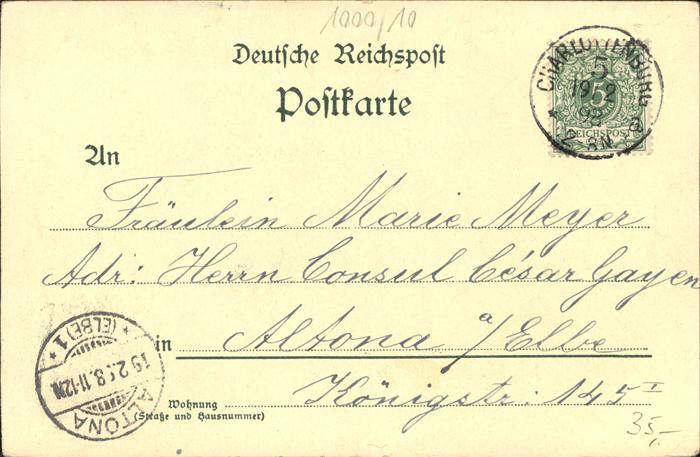 1000/10
Deutsche Reichspost
Postkarte
CHARLOTTENBURG
5
19.2
98
8N
* 2
REICHSPOST
An
Fräulein Marie Meyer
Adr: Herrn Consul César Gayen
in Altona a/Elbe
Wohnung Königstr: 145 I
(Straße und Hausnummer)
ALTONA
* (ELBE) 1 *
19.2.98.11-12N
35,-